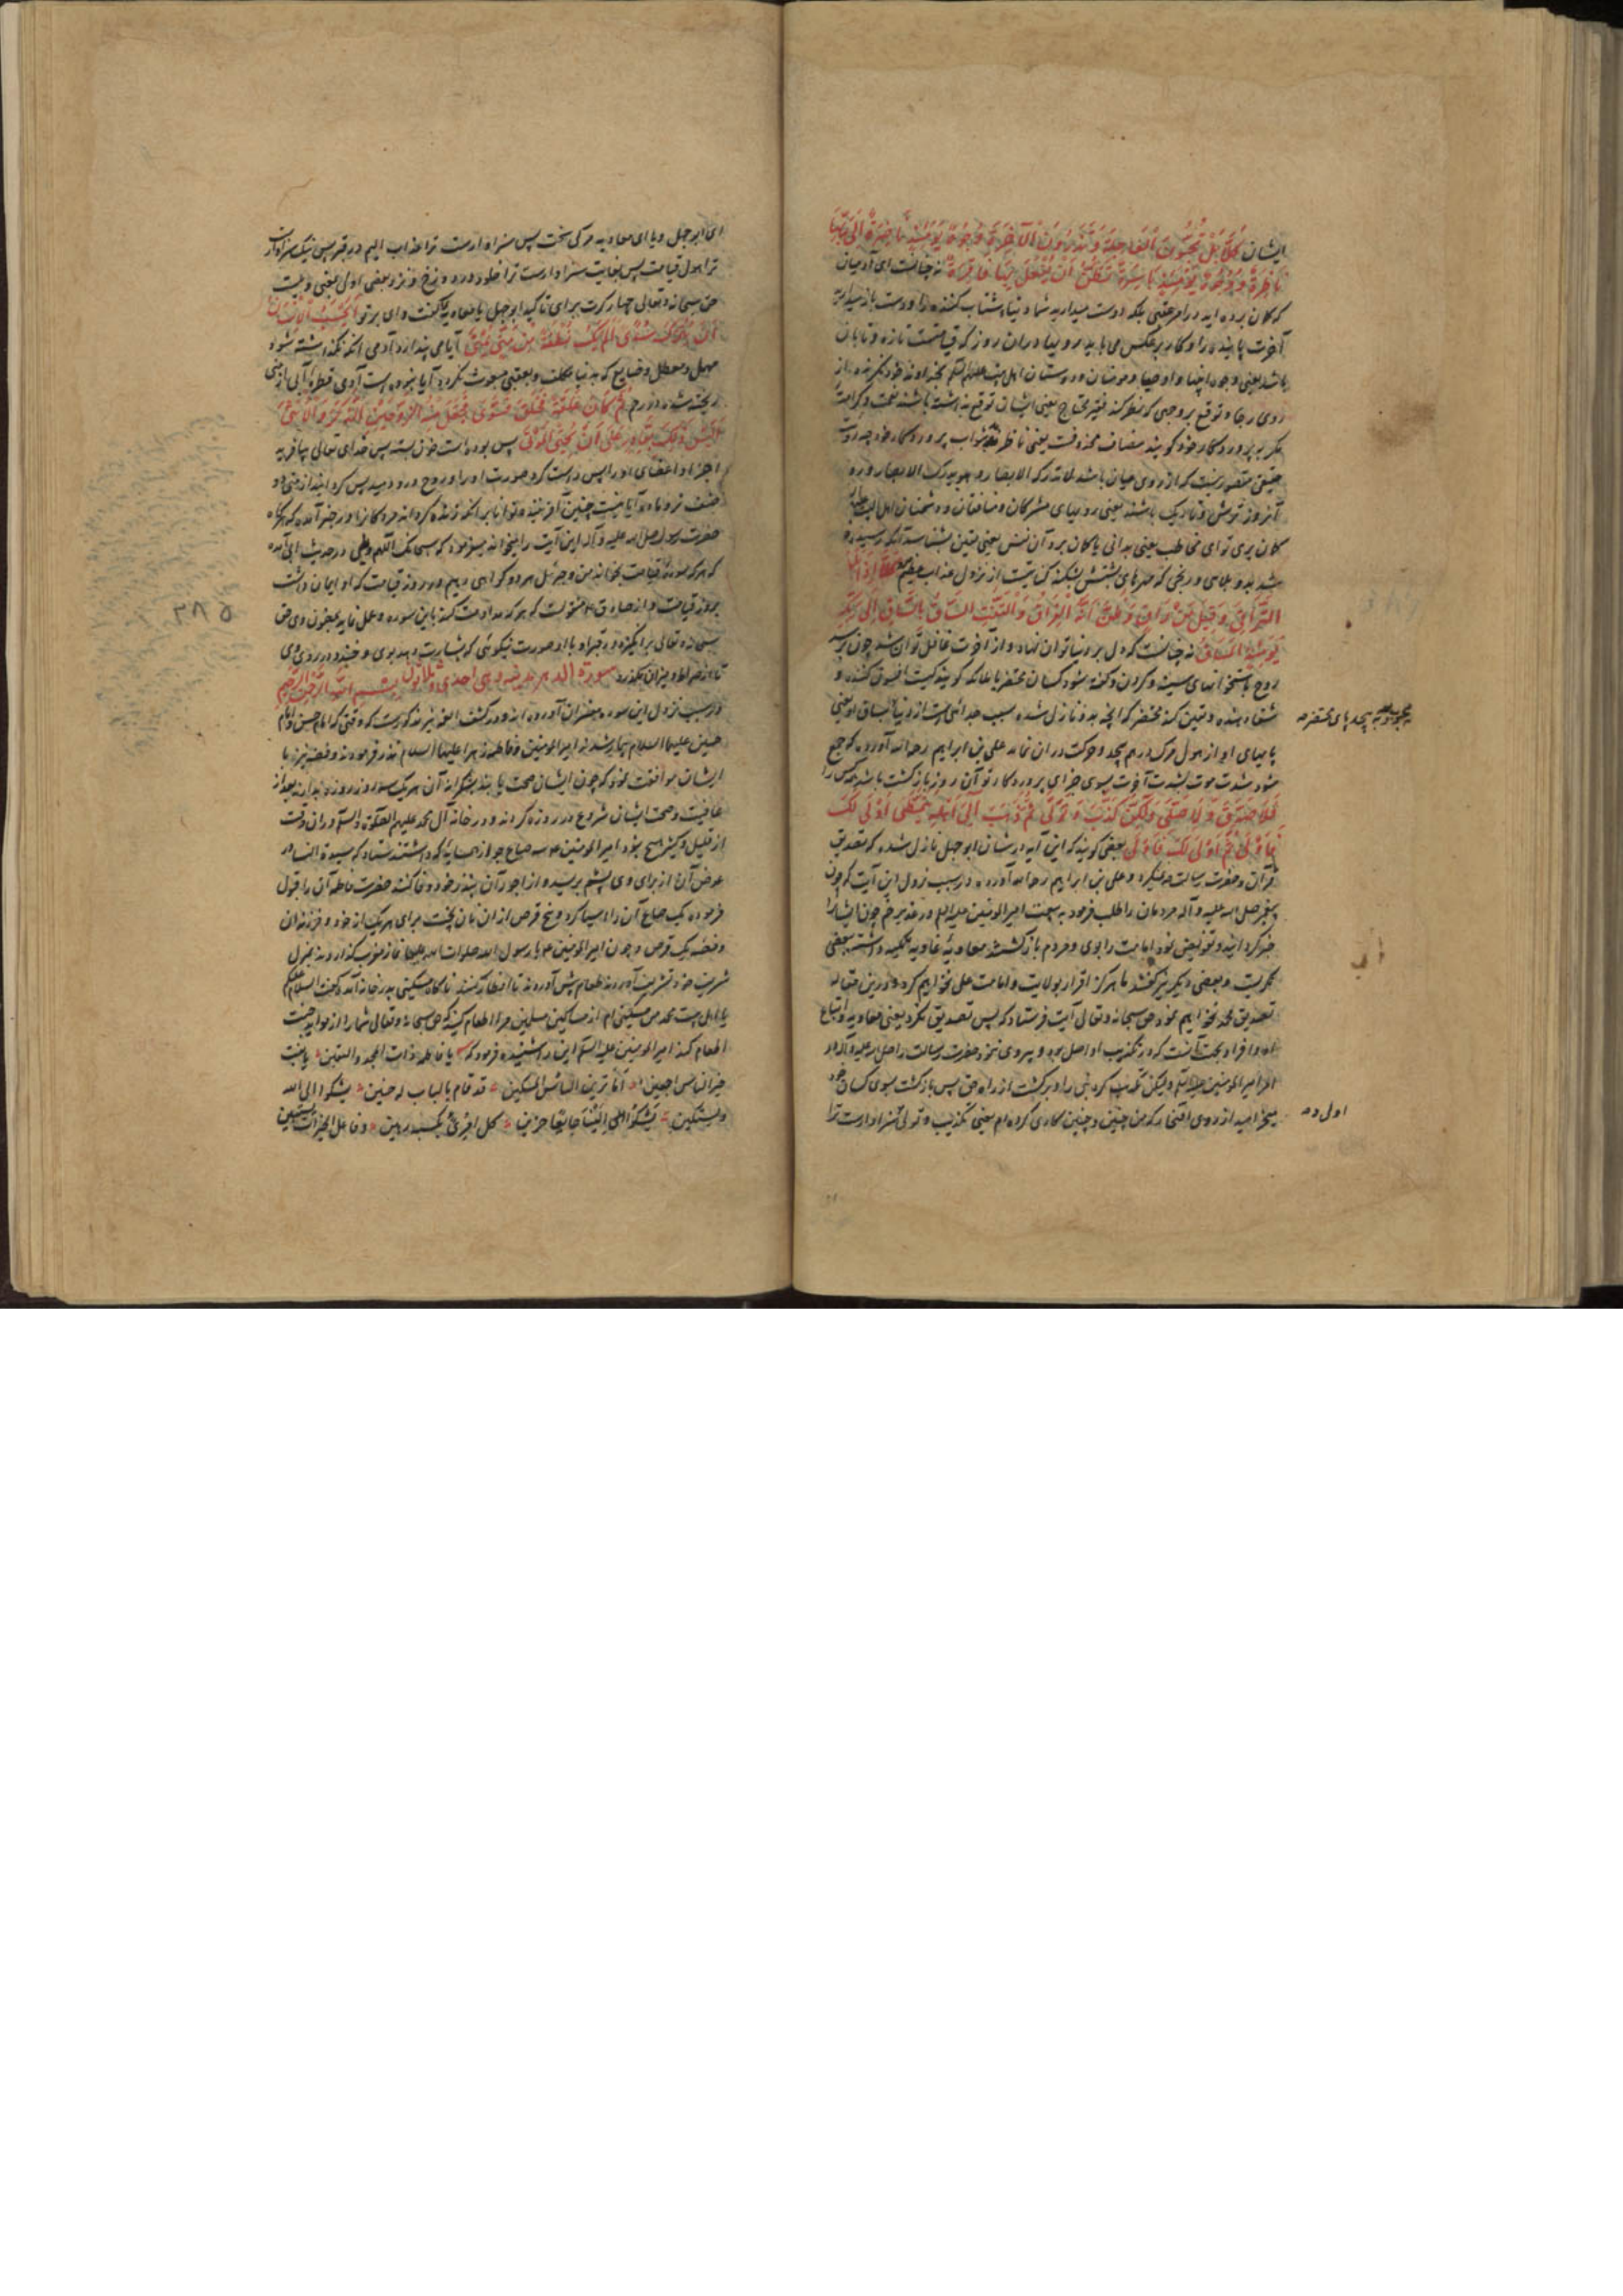 ایشان كَلَّا بَلْ تُحِبُّونَ الْعَاجِلَةَ وَتَذَرُونَ الْآخِرَةَ وُجُوهٌ يَوْمَئِذٍ نَاضِرَةٌ إِلَى رَبِّهَا
نَاظِرَةٌ وَوُجُوهٌ يَوْمَئِذٍ بَاسِرَةٌ تَظُنُّ أَنْ يُفْعَلَ بِهَا فَاقِرَةٌ نه چنانست ای آدمیان
که کمان برده اید در امر عقبی بلکه دوست میدارید شما دنیای شتاب کننده را و دست باز میدارید
آخرت پاینده را و کار برعکس می باید رویها در آن روز که قیامتست تازه و تابان
باشد یعنی وجوه انبیا و اوصیا و مومنان و دوستان اهل بیت علیهم السلم بخداوند خود نکرنده از
روی رجا و توقع بر وجهی که نظر کند فقیر محتاج یعنی ایشان توقع نداشته باشند نعمت و کرامت
مکر به پروردکار خود کویند مضاف محذوفست یعنی ناظر ثواب پروردکار خود چه رویت
حقیقی متصور نیست که از روی عیان باشد لا تدرکه الابصار و هو یدرک الابصار و
آنروز ترش و تاریک باشند یعنی رویهای مشرکان و منافقان و دشمنان اهل بیت
کمان بری تو ای مخاطب یعنی بدانی یا کمان برد آن نفس یعنی یقین بشناسد آنکه رسیده
شد بدو بلایی و رنجی که مهرهای پشتش بشکند کنایتست از نزول عذاب عظیم كَلَّا إِذَا بَلَغَتِ
التَّرَاقِيَ وَقِيلَ مَنْ رَاقٍ وَظَنَّ أَنَّهُ الْفِرَاقُ وَالْتَفَّتِ السَّاقُ بِالسَّاقِ إِلَى رَبِّكَ
يَوْمَئِذٍ الْمَسَاقُ نه چنانست که دل بر دنیا توان نهاد و از آخرت غافل توان شد چون برسد
روح باستخوانهای سینه و کردن و کفته شود کسان محتضر یا ملائکه کویند کیست افسون کننده و
شفا دهنده و یقین کند محتضر که آنچه بدو نازل شده سبب جدائی است از دنیا
پایهای او از هول مرک درهم پیچد و حرکت در آن نماند علی بن ابراهیم رحمه الله آورده که جمع
شود شدت موت بشدت آخرت بسوی جزای پروردکار تو آن روز بازکشت باشد همه کس را
فَلَا صَدَّقَ وَلَا صَلَّى وَلَكِنْ كَذَّبَ وَتَوَلَّى ثُمَّ ذَهَبَ إِلَى أَهْلِهِ يَتَمَطَّى أَوْلَى لَكَ
فَأَوْلَى ثُمَّ أَوْلَى لَكَ فَأَوْلَى بعضی کویند که این آیه در شان ابو جهل نازل شده که تصدیق
قرآن و حضرت رسالت نمیکرد و علی بن ابراهیم رحمه الله آورده در سبب نزول این آیت که چون
پیغمبر صلی الله علیه و آله مردمان را طلب فرمود به بیعت امیر المومنین علیه السلم در غدیر خم چون ایشانرا
خبر کردانید و تفویض نمود امامت را بوی و مردم بازکشتند معاویه
و بعضی دیکر نیز کفتند ما هرکز اقرار بولایت و امامت علی نخواهیم کرد و درین مقاله
تصدیق محمد نخواهیم نمود حق سبحانه و تعالی آیت فرستاد که پس تصدیق نکرد یعنی معاویه و اتباع
امر امیر المومنین علیه السلم و لیکن تکذیب کرد نبی را و برکشت از راه حق پس بازکشت بسوی کسان خود
میخرامید از روی افتخار که من چنین و چنین کاری کرده ام یعنی تکذیب و تولی سزاوارست ترا
پیچد پای محتضر
اول
ای ابو جهل و یا ای معاویه مرکی سخت پس سزاوارست ترا عذاب الیم در قبر پس نیک سزاوارست
ترا هول قیامت پس بغایت سزاوارست ترا خلود در دوزخ و نزد بعضی اولی یعنی ویلست
حق سبحانه و تعالی چهار کرت برای تاکید ابو جهل یا معاویه کفت وای بر تو أَيَحْسَبُ الْإِنْسَانُ
أَنْ يُتْرَكَ سُدًى أَلَمْ يَكُ نُطْفَةً مِنْ مَنِيٍّ يُمْنَى آیا می پندارد آدمی آنکه فروکذاشته شود
مهمل و معطل و ضایع که بدنیا مکلف و بعقبی مبعوث نکردد آیا نبوده است آدمی قطره آبی از منی
ریخته شده در رحم ثُمَّ كَانَ عَلَقَةً فَخَلَقَ فَسَوَّى فَجَعَلَ مِنْهُ الزَّوْجَيْنِ الذَّكَرَ وَالْأُنْثَى
أَلَيْسَ ذَلِكَ بِقَادِرٍ عَلَى أَنْ يُحْيِيَ الْمَوْتَى پس بوده است خون بسته پس خدای تعالی بیافریند
اجزا و اعضای او را پس راست کرد صورت او را و روح درو دمید پس کردانید از منی دو
صنف نر و ماده آیا نیست چنین آفریننده توانا بر آنکه زنده کرداند مردکانرا و در خبر آمده که هرکاه
حضرت رسول صلی الله علیه و آله این آیت را میخواند میفرمود که سبحانک اللهم و بلی و در حدیث ابی آمده
که هر که سورهٔ قیامت بخواند من و جبرئیل هر دو کواهی دهیم در روز قیامت که او ایمان داشت
بروز قیامت و از صادق ع منقولست که هر که مداومت کند باین سوره و عمل نماید بمضمون وی حق
سبحانه و تعالی برانکیزد در قبر او با او صورت نیکوئی که بشارت دهد بوی و خندد در روی وی
تا از صراط و میزان بکذرد سورة الدهر مدنیه و هی احدی و ثلاثون بسم الله الرحمن الرحیم
در سبب نزول این سوره مفسران آورده اند و در کشف الغمه نیز مذکورست که وقتی که امام حسن و امام
حسین علیهما السلام بیمار شدند امیر المومنین و فاطمه زهرا علیهما السلام نذر فرمودند و فضه نیز با
ایشان موافقت نمود که چون ایشان صحت یابند بشکرانه آن هر یک سه روز روزه بدارند بعد از
عافیت و صحت ایشان شروع در روزه کردند و در خانه آل محمد علیهم الصلوة و السلم در آن وقت
از قلیل و کثیر هیچ نبود امیر المومنین ع سه صاع جو از همسایه که داشتند ستاد که سیدة النسا
عوض آن از برای وی پشم بریسد و از اجور آن بنذر خود وفا کند حضرت فاطمه آن را قبول
فرموده یک صاع آن را آسیا کرد و پنج قرص از آن نان پخت برای هر یک از خود و فرزندان
و فضه یک قرص و چون امیر المومنین ع با رسول الله صلوات الله علیهما نماز مغرب کذاردند بمنزل
شریف خود تشریف آوردند طعام پیش آوردند تا افطار کنند ناکاه مسکینی بدر خانه آمد و کفت السلام علیکم
یا اهل بیت محمد من مسکینی ام از مساکین مسلمین مرا اطعام کنید که حق سبحانه و تعالی شما را از موائد جنت
اطعام کند امیر المومنین علیه السلم این را شنیده فرمود که یا فاطمه ذات المجد و الیقین یا بنت
خیر الناس اجمعین اما ترین البائس المسکین قد قام بالباب له حنین یشکوا الی الله
و یستکین یشکوا الینا جایعا حزین کل امرئ بکسبه رهین و فاعل الخیرات یستبین
۲۸۵